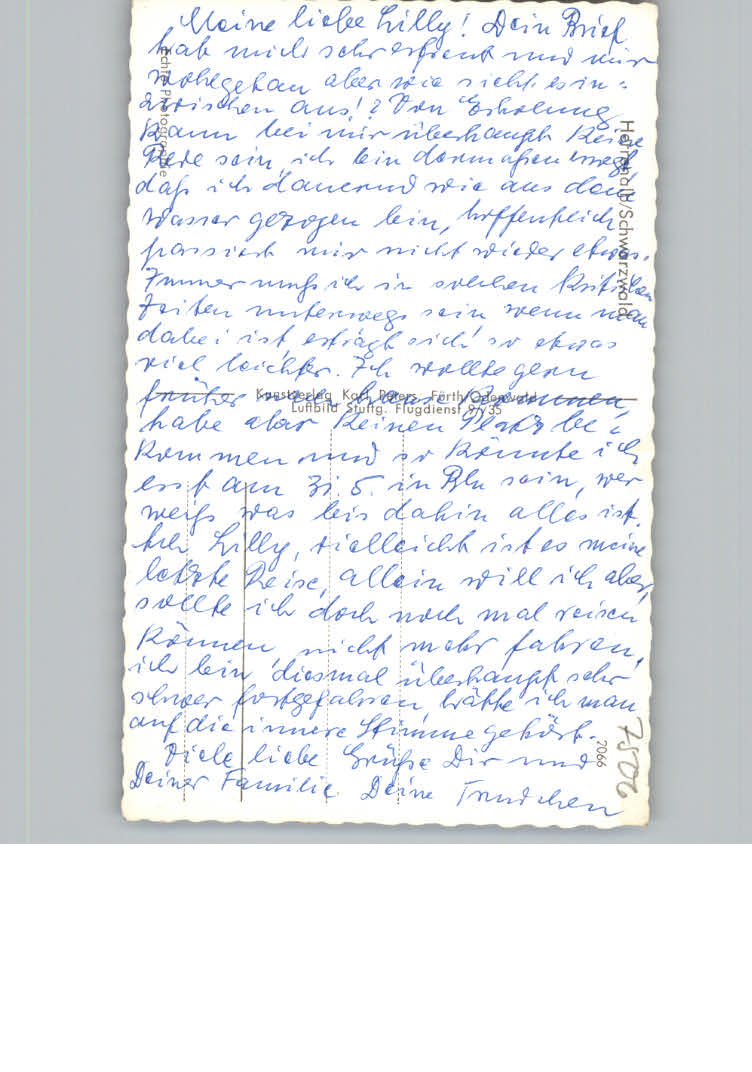 Meine liebe Lilly! Dein Brief
hat mich sehr erfreut und mir
wohlgetan aber wie sieht es in-
zwischen aus!? Von Erholung
kann bei mir überhaupt keine
Rede sein, ich bin dermaßen erregt,
daß ich dauernd wie aus dem
Wasser gezogen bin, hoffentlich
passiert mir nicht wieder etwas.
Immer muß ich in solchen kritischen
Zeiten unterwegs sein wenn man
dabei ist erträgt sich so etwas
viel leichter. Ich wollte gern
früher nach Hause kommen,
habe aber keinen Platz be-
kommen und so könnte ich
erst am 31. 5. in Bln sein, wer
weiß was bis dahin alles ist.
Ach Lilly, vielleicht ist es meine
letzte Reise, allein will ich aber,
sollte ich doch noch mal reisen
können nicht mehr fahren,
ich bin diesmal überhaupt sehr
schwer fortgefahren, hätte ich man
auf die innere Stimme gehört.
Viele liebe Grüße Dir und
Deiner Familie Deine Trudchen
Echte Photographie
Herrenalb/Schwarzwald
Kunstverlag Karl Peters, Fürth/Odenwald
Luftbild Stuttg. Flugdienst 9/935
7066
7506